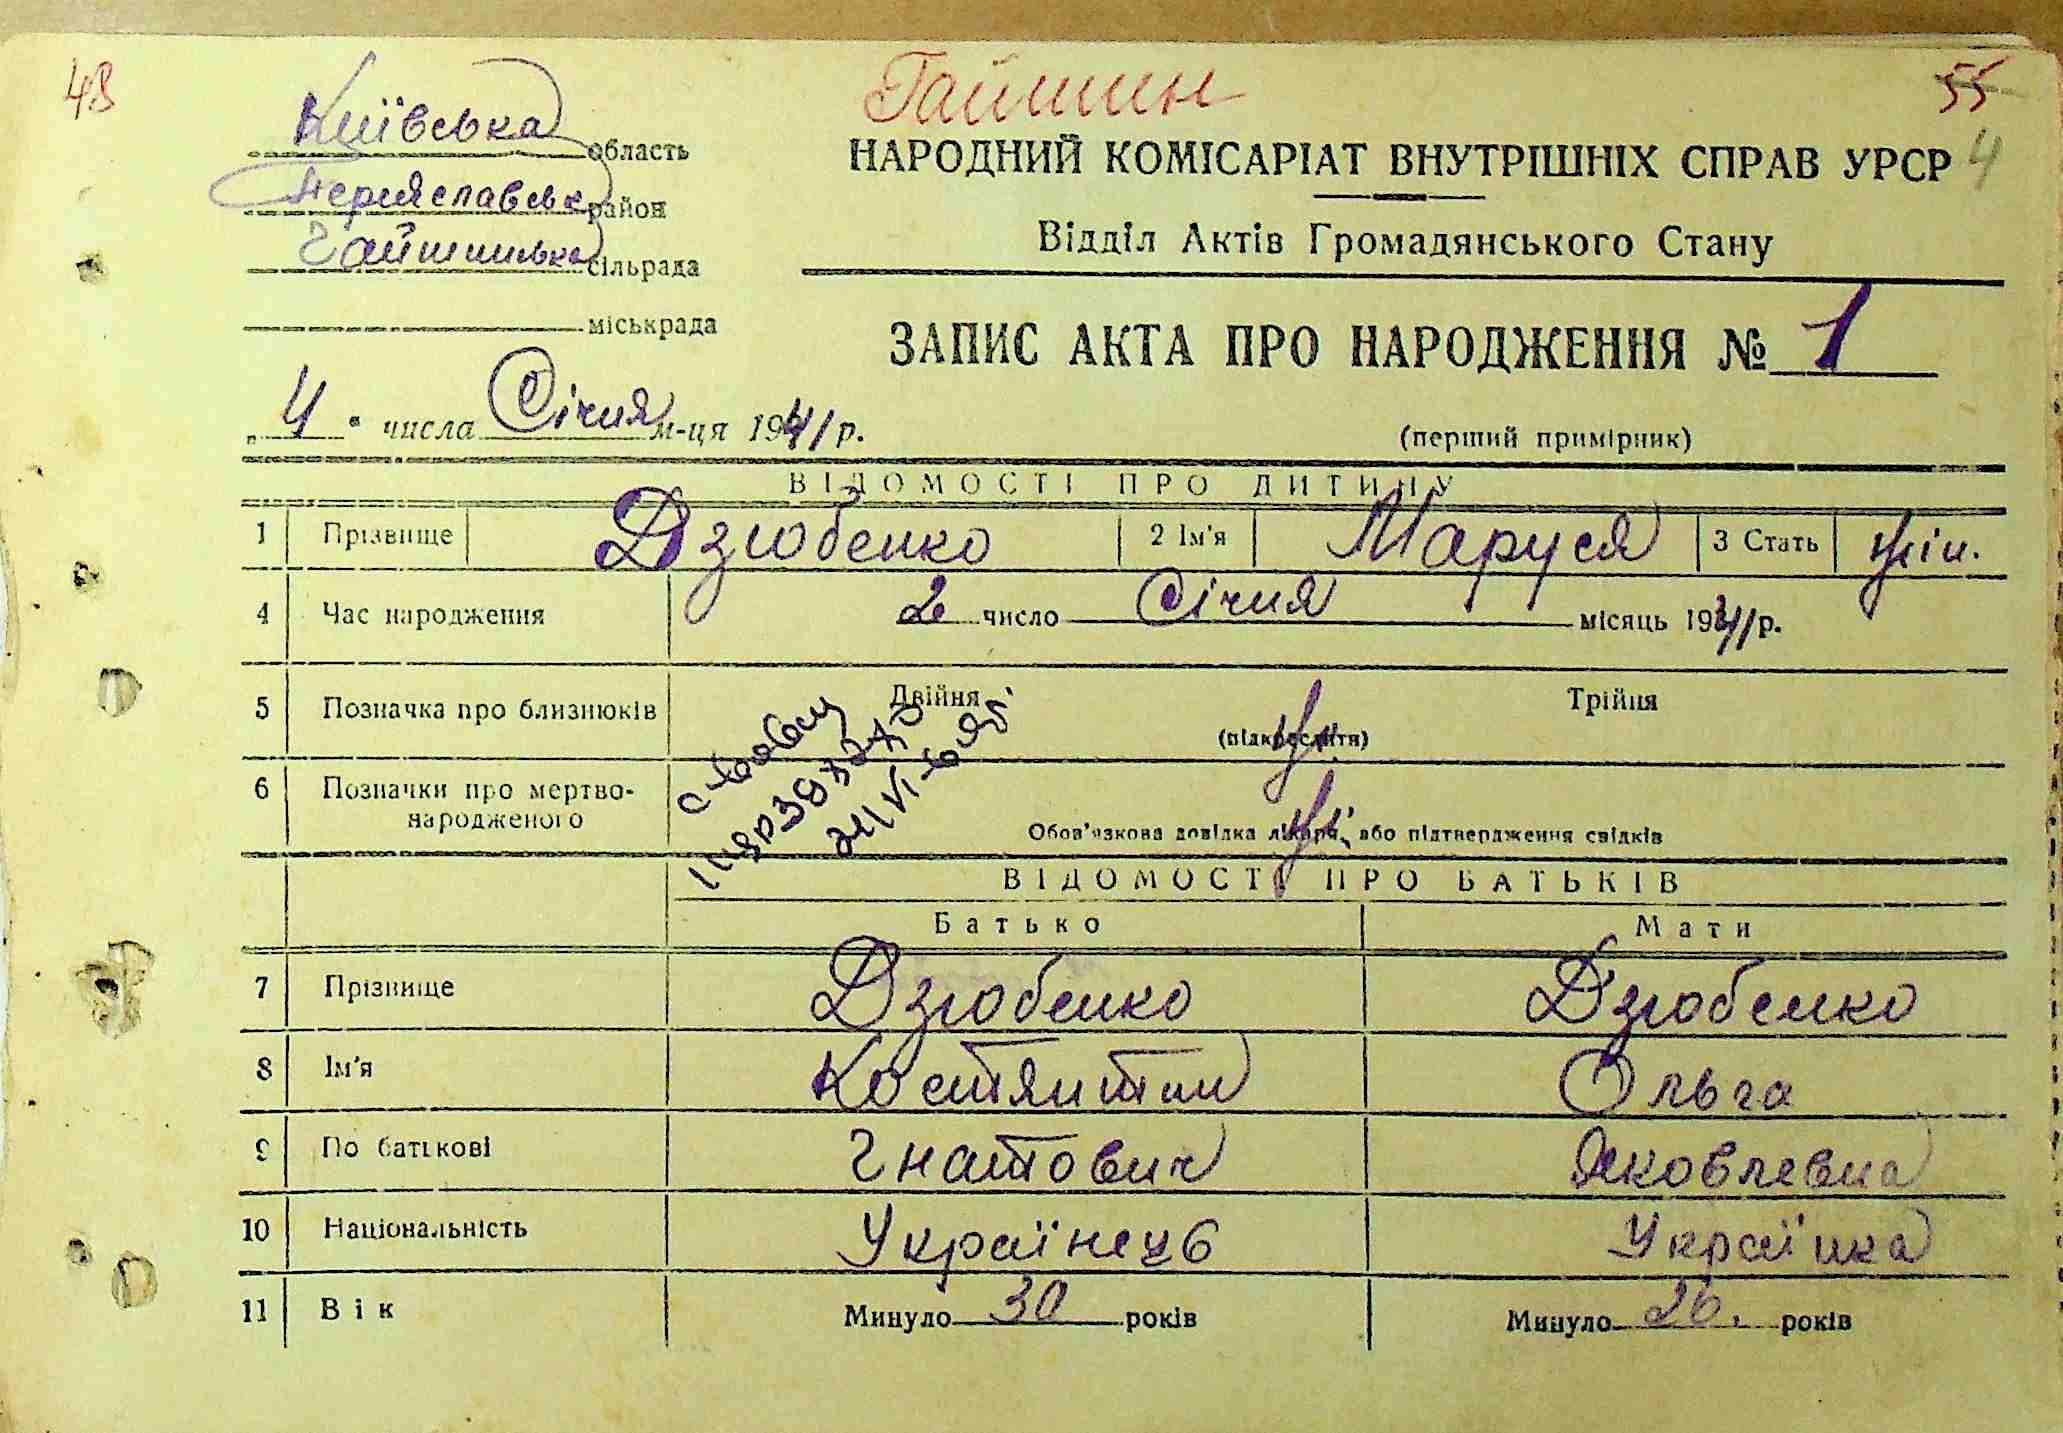 48
Гайшин
55
4
Київська область
Переяславськ район
Гайшинська сільрада
міськрада
НАРОДНИЙ КОМІСАРІАТ ВНУТРІШНІХ СПРАВ УРСР
Відділ Актів Громадянського Стану
ЗАПИС АКТА ПРО НАРОДЖЕННЯ № 1
„4“ числа Січня м-ця 1941 р.
(перший примірник)
ВІДОМОСТІ ПРО ДИТИНУ
1 Прізвище Дзюбенко 2 Ім'я Маруся 3 Стать жін.
4 Час народження 2 число Січня місяць 1941 р.
5 Позначка про близнюків Двійня Трійня
(підкреслити)
6 Позначки про мертвонародженого
Обов'язкова довідка лікаря, або підтвердження свідків
ВІДОМОСТІ ПРО БАТЬКІВ
Батько Мати
7 Прізвище Дзюбенко Дзюбенко
8 Ім'я Костянтин Ольга
9 По батькові Гнатович Яковлевна
10 Національність Українець Українка
11 Вік Минуло 30 років Минуло 26. років